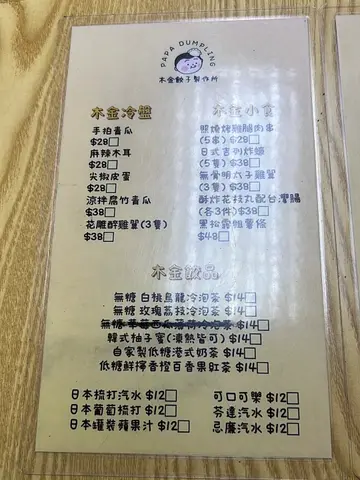 PAPA DUMPLING
木金餃子製作所
木金冷盤
手拍青瓜
$28□
麻辣木耳
$28□
尖椒皮蛋
$28□
涼拌腐竹青瓜
$38□
花雕醉雞翼(3隻)
$38□
木金小食
照燒烤雞腸肉串
(5串) $28□
日式吉列炸蠔
(5隻) $38□
無骨明太子雞翼
(3隻) $38□
酥炸花枝丸配台灣腸
(各3件) $38□
黑松露粗薯條
$48□
木金飲品
無糖 白桃烏龍冷泡茶 $14□
無糖 玫瑰荔枝冷泡茶 $14□
無糖 草莓西瓜薄荷冷泡茶 $14□
韓式柚子蜜(凍熱皆可) $14□
自家製低糖港式奶茶 $14□
低糖鮮檸香橙百香果紅茶 $14□
日本梳打汽水 $12□
日本葡萄梳打 $12□
日本罐裝蘋果汁 $12□
可口可樂 $12□
芬達汽水 $12□
忌廉汽水 $12□